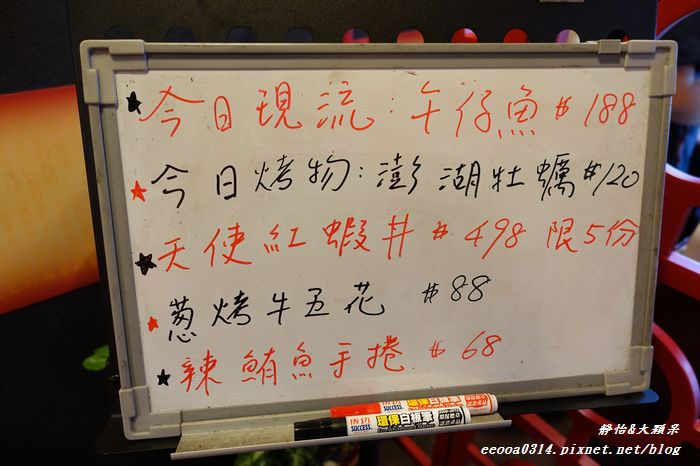 ★今日現流：午仔魚#188
★今日烤物：澎湖牡蠣#120
★天使紅蝦丼#498 限5份
★葱烤牛五花 #88
★辣鮪魚手捲#68
成功 SUCCESS 環保白板筆
成功 SUCCESS 環保白板筆
靜怡&大顆呆
eeooa0314.pixnet.net/blog